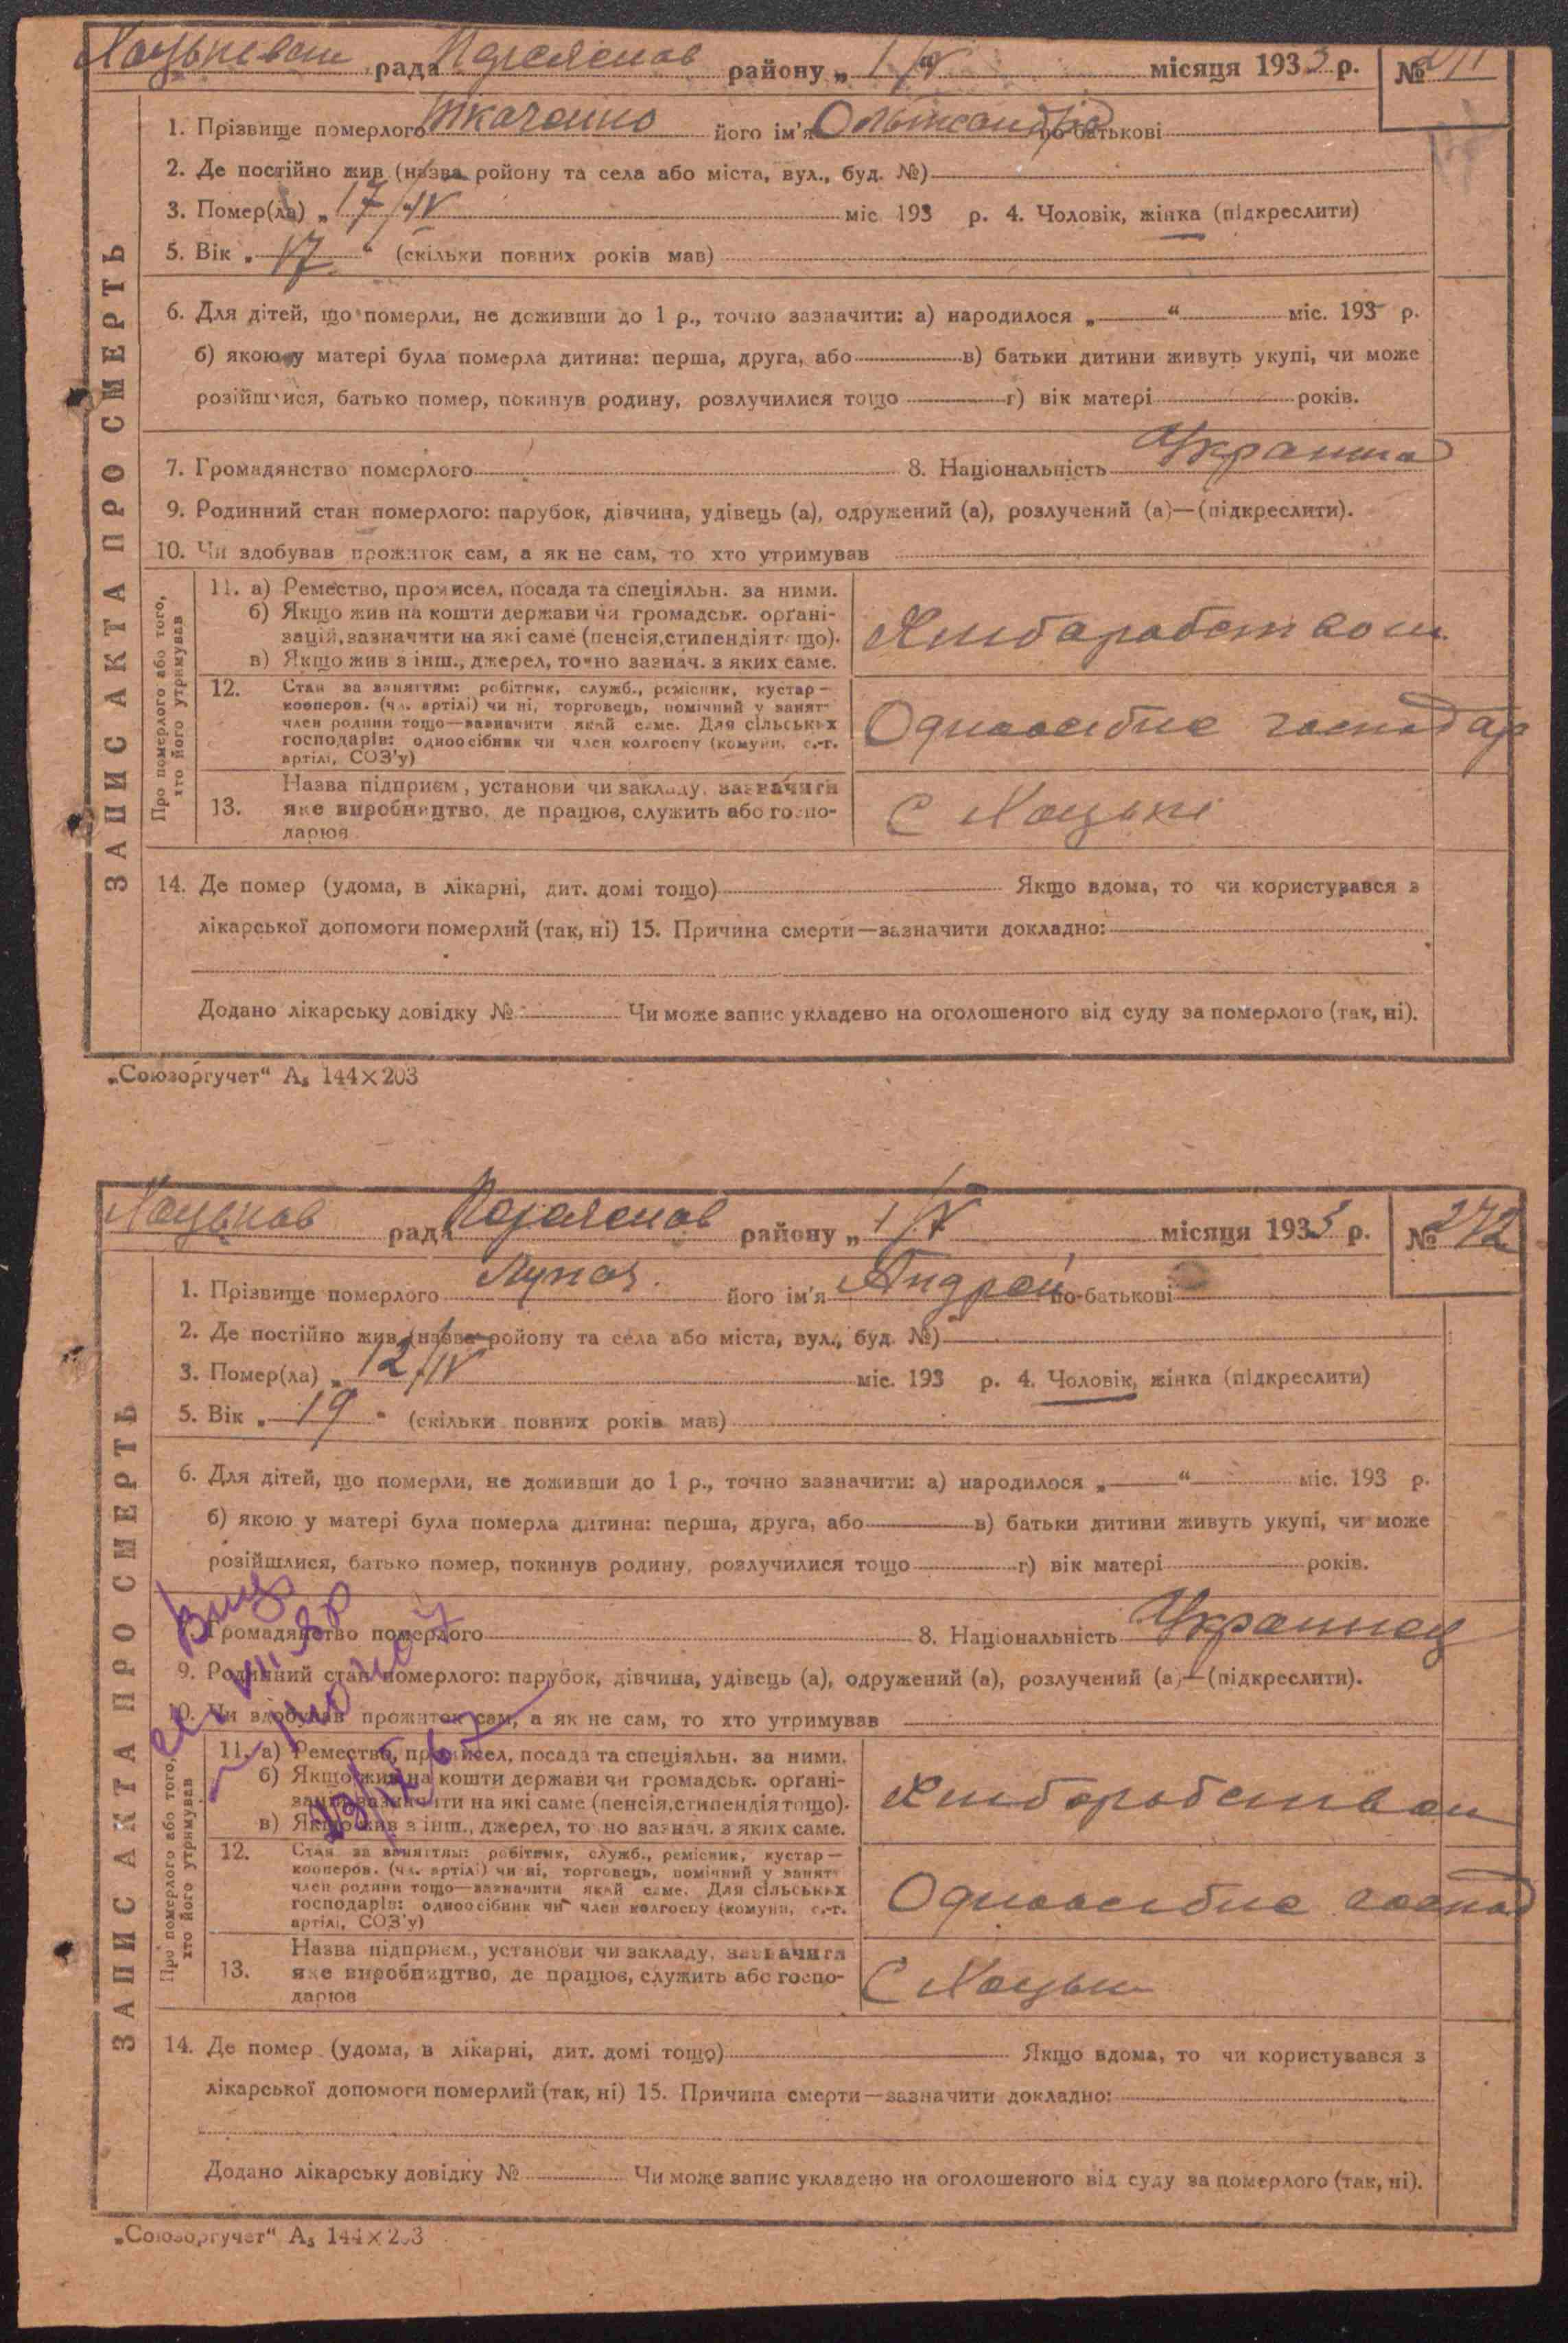 рада району „ 1/V місяця 1933 р. № 271
1. Прізвище померлого Ткаченко його ім'я Олександра по-батькові
2. Де постійно жив (назва ройону та села або міста, вул., буд. №)
3. Помер(ла) „ 17/IV міс. 193 р. 4. Чоловік, жінка (підкреслити)
5. Вік „ 17 “ (скільки повних років мав)
6. Для дітей, що померли, не доживши до 1 р., точно зазначити: а) народилося „ “ міс. 193 р.
б) якою у матері була померла дитина: перша, друга, або в) батьки дитини живуть укупі, чи може
розійшлися, батько помер, покинув родину, розлучилися тощо г) вік матері років.
7. Громадянство померлого 8. Національність
9. Родинний стан померлого: парубок, дівчина, удівець (а), одружений (а), розлучений (а)—(підкреслити).
10. Чи здобував прожиток сам, а як не сам, то хто утримував
ЗАПИС АКТА ПРО СМЕРТЬ
Про померлого або того,
хто його утримував
11. а) Ремество, промисел, посада та спеціяльн. за ними.
б) Якщо жив на кошти держави чи громадськ. орґані-
зацій, зазначити на які саме (пенсія, стипендія тощо).
в) Якщо жив з інш., джерел, точно зазнач. з яких саме.
12. Стан за заняттям: робітник, служб., ремісник, кустар—
кооперов. (чл. артілі) чи ні, торговець, помічний у занят-
член родини тощо—зазначити який саме. Для сільських
господарів: одноосібник чи член колгоспу (комуни, с.-г.
артілі, СОЗ'у)
Одноосібне господар
13. Назва підприєм., установи чи закладу, зазначити
яке виробництво, де працює, служить або госпо-
дарює
С Хоцькі
14. Де помер (удома, в лікарні, дит. домі тощо) Якщо вдома, то чи користувався з
лікарської допомоги померлий (так, ні) 15. Причина смерти—зазначити докладно:
Додано лікарську довідку № Чи може запис укладено на оголошеного від суду за померлого (так, ні).
„Союзоргучет“ А₅ 144×203
рада району „ 1/V місяця 1933 р. № 272
1. Прізвище померлого його ім'я Андрей по-батькові
2. Де постійно жив (назва ройону та села або міста, вул., буд. №)
3. Помер(ла) „ 12/IV міс. 193 р. 4. Чоловік, жінка (підкреслити)
5. Вік „ 19 “ (скільки повних років мав)
6. Для дітей, що померли, не доживши до 1 р., точно зазначити: а) народилося „ “ міс. 193 р.
б) якою у матері була померла дитина: перша, друга, або в) батьки дитини живуть укупі, чи може
розійшлися, батько помер, покинув родину, розлучилися тощо г) вік матері років.
Громадянство померлого 8. Національність Украинец
9. Родинний стан померлого: парубок, дівчина, удівець (а), одружений (а), розлучений (а)—(підкреслити).
10. Чи здобував прожиток сам, а як не сам, то хто утримував
ЗАПИС АКТА ПРО СМЕРТЬ
Про померлого або того,
хто його утримував
11. а) Ремество, промисел, посада та спеціяльн. за ними.
б) Якщо жив на кошти держави чи громадськ. орґані-
зацій, зазначити на які саме (пенсія, стипендія тощо).
в) Якщо жив з інш., джерел, точно зазнач. з яких саме.
12. Стан за заняттям: робітник, служб., ремісник, кустар—
кооперов. (чл. артілі) чи ні, торговець, помічний у занят-
член родини тощо—зазначити який саме. Для сільських
господарів: одноосібник чи член колгоспу (комуни, с.-г.
артілі, СОЗ'у)
Одноосібне господ
13. Назва підприєм., установи чи закладу, зазначити
яке виробництво, де працює, служить або госпо-
дарює
С Хоцьки
14. Де помер (удома, в лікарні, дит. домі тощо) Якщо вдома, то чи користувався з
лікарської допомоги померлий (так, ні) 15. Причина смерти—зазначити докладно:
Додано лікарську довідку № Чи може запис укладено на оголошеного від суду за померлого (так, ні).
„Союзоргучет“ А₅ 144×203